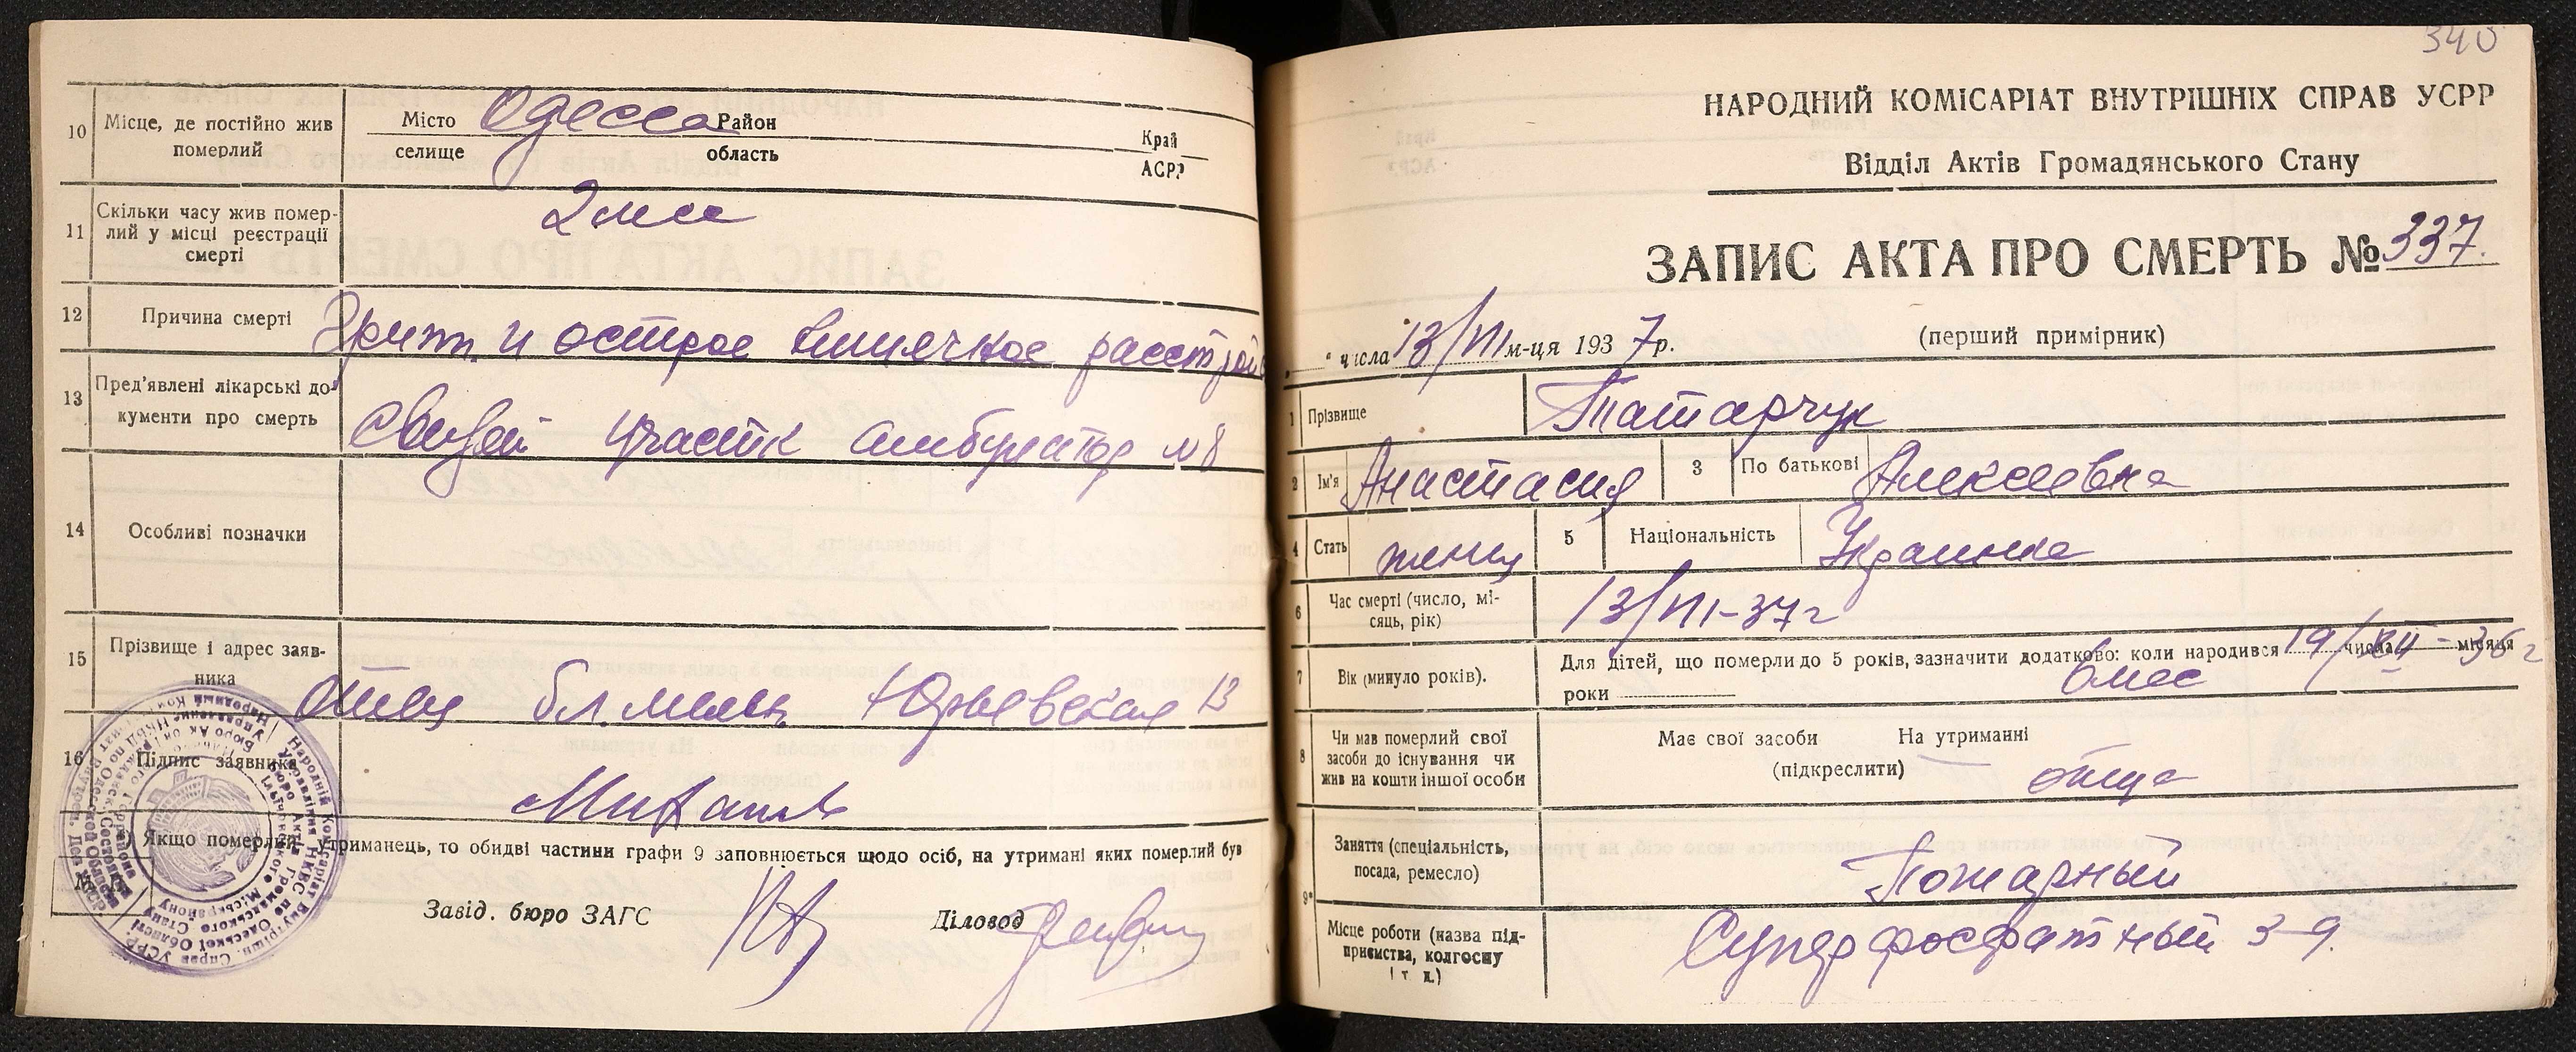 10 Місце, де постійно жив померлий
Місто Одесса Район Край
селище область АСРР
11 Скільки часу жив помер-
лий у місці реєстрації
смерті
2 мес
12 Причина смерті
Грипп. и острое кишечное расстройс
13 Пред'явлені лікарські до-
кументи про смерть
Свидет участк амбулатор №8
14 Особливі позначки
15 Прізвище і адрес заяв-
ника
отец бл. мельн. Юрьевская 13
16 Підпис заявника
Якщо померлий утриманець, то обидві частини графи 9 заповнюється щодо осіб, на утримані яких помер.лий був
Завід. бюро ЗАГС Діловод
340
НАРОДНИЙ КОМІСАРІАТ ВНУТРІШНІХ СПРАВ УСРР
Відділ Актів Громадянського Стану
ЗАПИС АКТА ПРО СМЕРТЬ № 337.
" числа 13/VI м-ця 1937 р. (перший примірник)
1 Прізвище Татарчук
2 Ім'я Анастасия 3 По батькові Алексеевна
4 Стать женщ 5 Національність Украинка
6 Час смерті (число, мі-
сяць, рік)
13/VI-37 г
7 Вік (минуло років).
Для дітей, що померли до 5 років, зазначити додатково: коли народився 19/XII - 36 г числа місяця
роки 6 мес
8 Чи мав померлий свої
засоби до існування чи
жив на кошти іншої особи
Має свої засоби На утриманні
(підкреслити) отца
9* Заняття (спеціальність,
посада, ремесло)
Пожарный
Місце роботи (назва під-
приємства, колгоспу
і т. д.)
Суперфосфатный з-д.